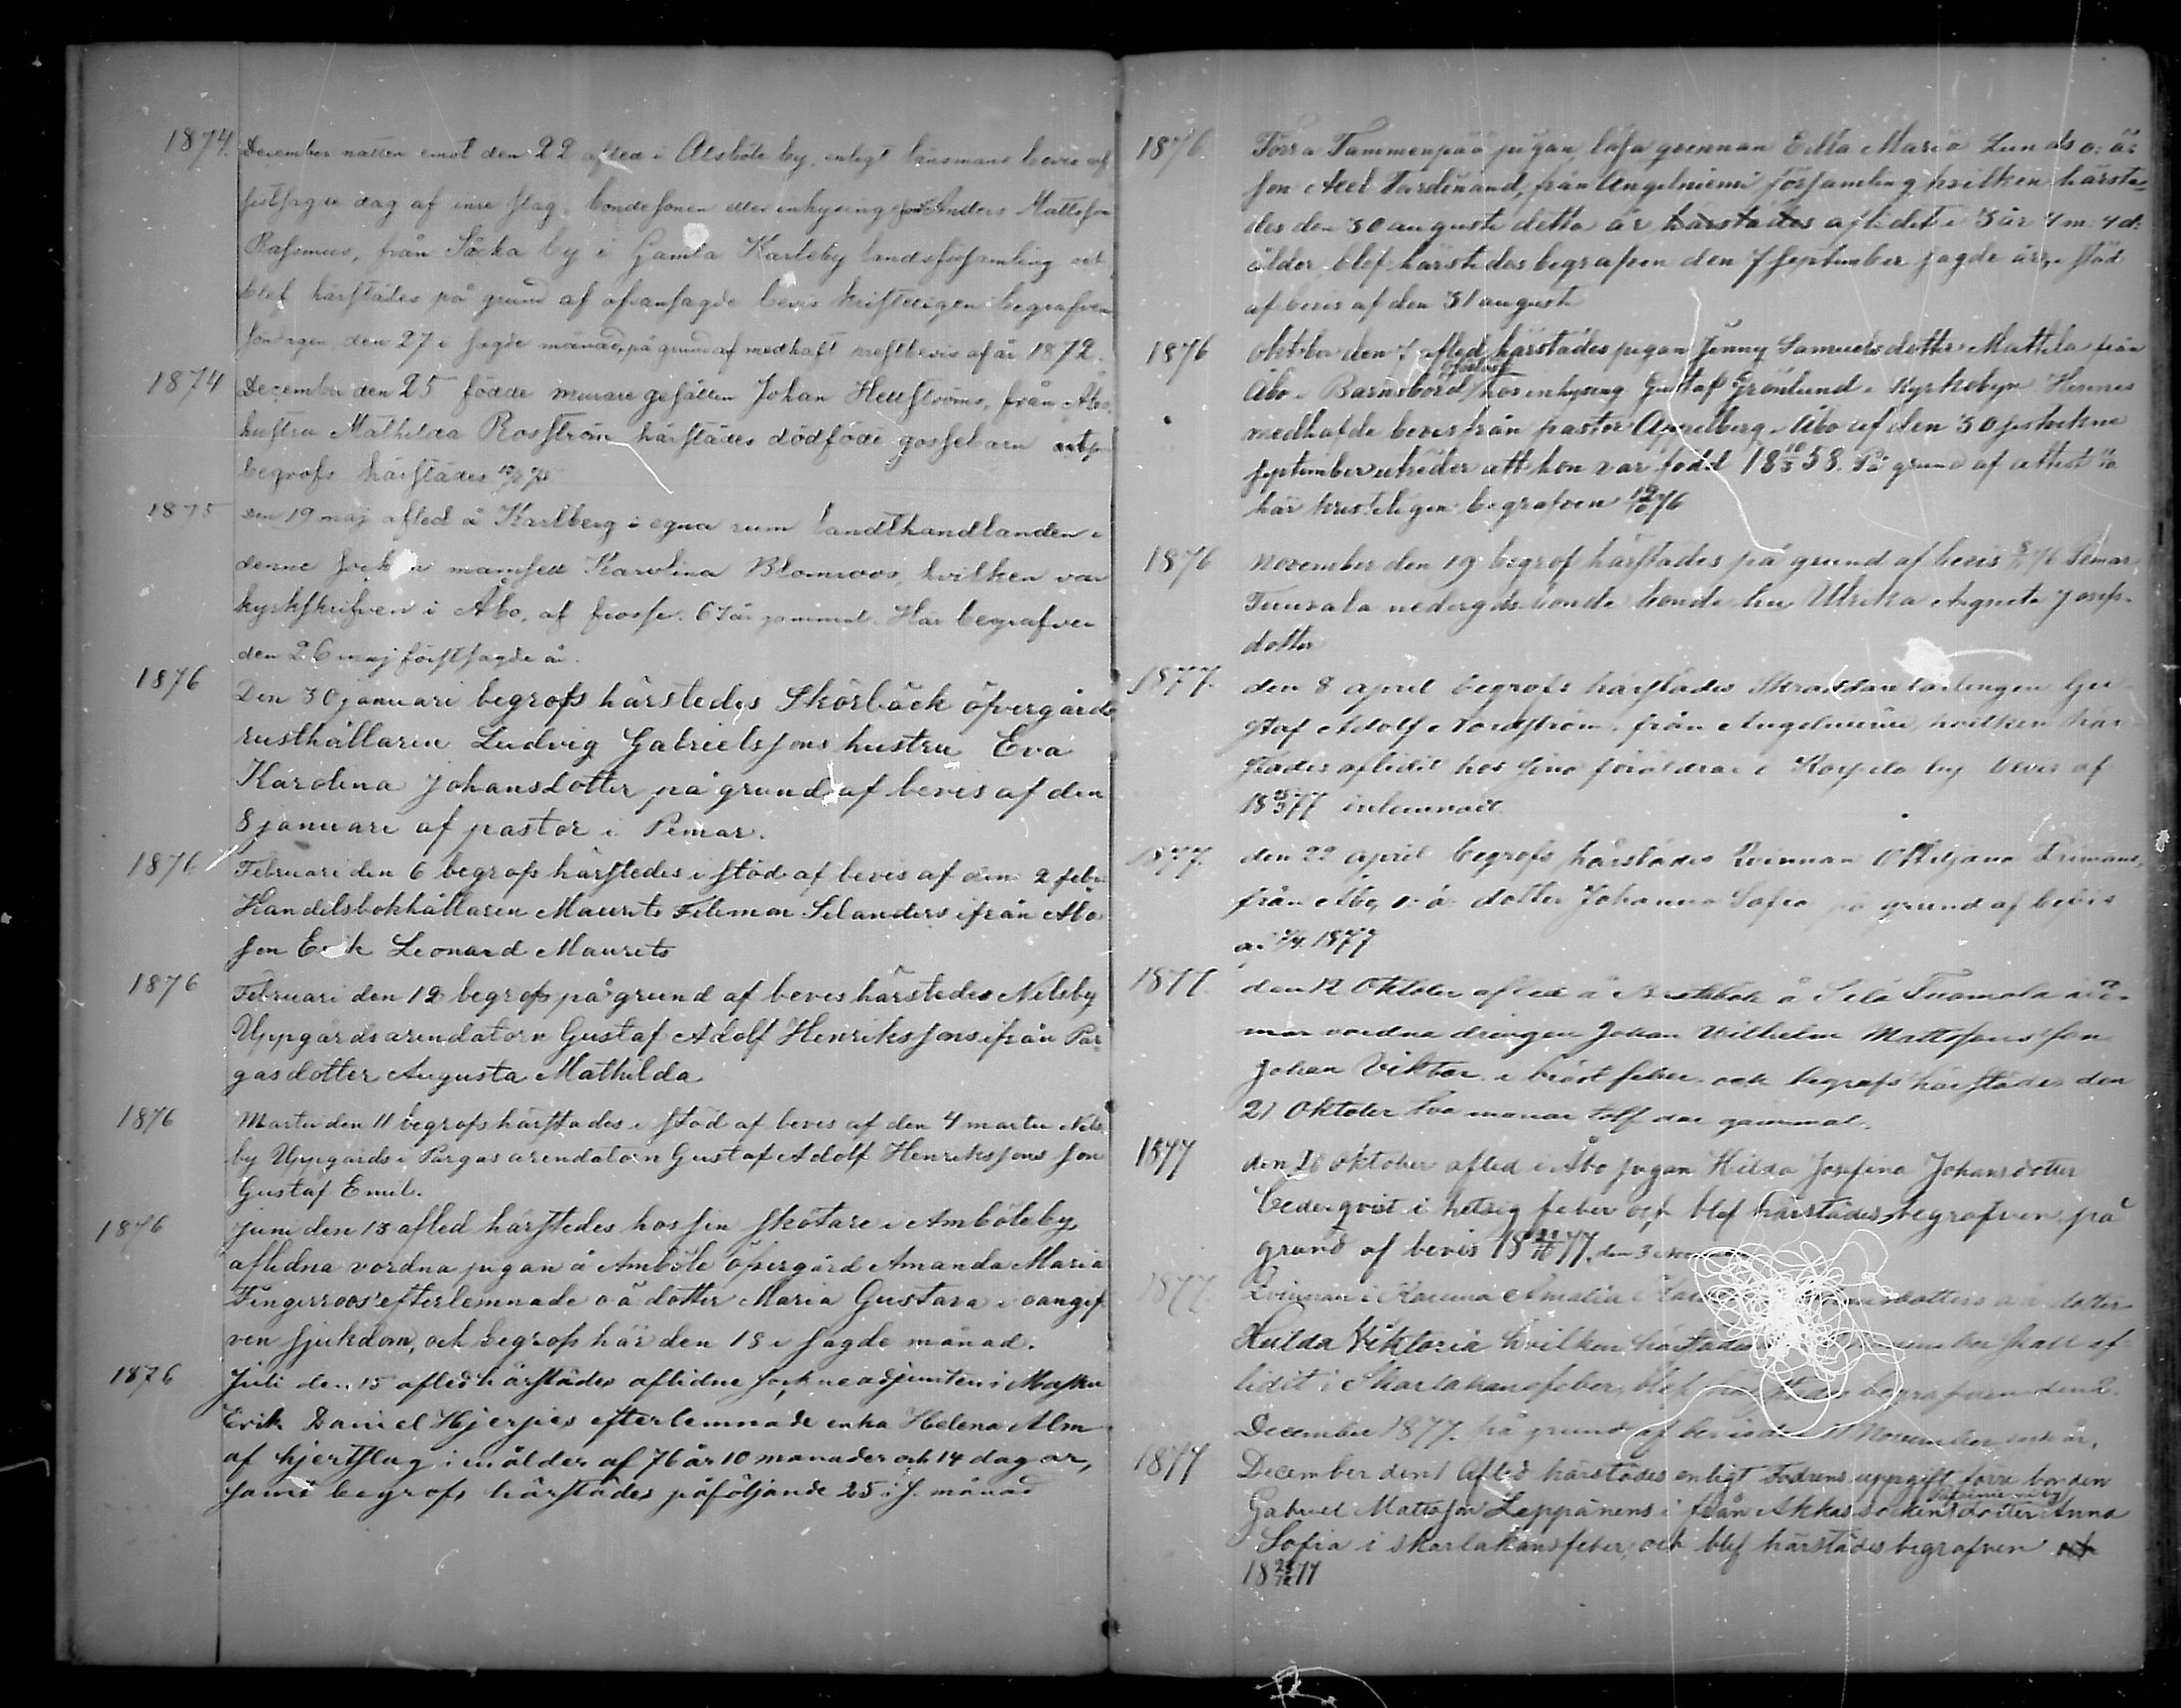 1874. December natten emot den 22 afled i Alsböle by, enligt länsmans bevis af
sistsagde dag af inre slag, bondesonen eller inhysing Anders Mattsson
Rassmus, från Såka by i Gamla Karleby landsförsamling och
blef härstädes på grund af ofvansagde bevis kristeligen begrafven
söndagen den 27 i sagde månad, på grund af medhaft prestbevis af år 1872.
1874 December den 25 födde murare gesällen Johan Hellströms, från Åbo,
hustru Mathilda Rosström härstädes dödfödt gossebarn
begrofs härstädes
1875 den 19 maj afled å Karlberg i egna rum landthandlanden i
denne socken mamsell Karolina Blomroos, hvilken var
kyrkskrifven i Åbo, af frossf. 67 år gammal. Här begrafven
den 26 maj förstsagde år.
1876 Den 30 januari begrofs härstedes Skörbäck öfvergårds
rusthållaren Ludvig Gabrielssons hustru Eva
Karolina Johansdotter på grund af bevis af den
8 januari af pastor i Pemar.
1876 Februari den 6 begrofs härstedes i stöd af bevis af den 2 febr.
Handelsbokhållaren Maurits Filemon Selanders ifrån Åbo
son Erik Leonard Maurits
1876 Februari den 12 begrofs på grund af bevis härstedes Nilsby
Uppgårds arendatorn Gustaf Adolf Henrikssons ifrån Par-
gas dotter Augusta Mathilda
1876 Martii den 11 begrofs härstades i stöd af bevis af den 4 martii Nils
by Uppgårds i Pargas arendatorn Gustaf Adolf Henrikssons son
Gustaf Emil.
1876 Juni den 13 afled härstedes hos sin skötare i Amböle by
aflidna vordna pigan å Amböle öfvergård Amanda Maria
Fingerroos' efterlemnade o ä dotter Maria Gustava i oangif
ven sjukdom, och begrofs här den 18 i sagde månad.
1876 Juli den 15 afled härstädes aflidne sockneadjunkten i Masku
Erik Daniel Hjerpes efterlemnade enka Helena Alm
af hjertslag i en ålder af 76 år 10 månader och 14 dagar,
samt begrofs härstädes påföljande 25 i s. månad
1876 Förra Tammenpää pigan, lösa qvinnan Edla Maria Lunds o: ä:
son Axel Ferdinand, från Angelniemi församling hvilken härstä-
des den 30 augusti detta år härstädes aflidit i 3 år 4 m. 4 d:
ålder, blef härstedes begrafven den 7 september sagde år, i stöd
af bevis af den 31 augusti
1876 oktober den 7 afled härstädes pigan Jenny Samuelsdotter Mattila från
Åbo i Barnsbörd hos inhysing Gustaf Grönlund i Kyrkobyn Hennes
medhafde bevis från pastor Appelberg i Åbo af den 30 sistvekne
september utvider att hon var född 18 10/3 58. På grund af attest
här kristeligen begrafven 12/10 76
1876 November den 19 begrof härstädes på grund af bevis 8/11 76 Pemar
Tuorala nedergårds bonde hu Ulrika Agneta Josefs-
dotter
1877. den 8 april begrofs härstädes Skräddare lärlingen Gu
staf Adolf Nordström, från Angelniemi, hvilken här
städes aflidit hos sina föräldrar i Korpela by bevis af
18 77 inlemnadt.
1877. den 22 april begrofs härstädes kvinnan Ottiljana Frimans,
från Åbo, o. ä. dotter Johanna Sofia på grund af bevis
af 1877
1877. den 12 Oktober afled å å Selä Tuomola
mor vordna drängen Johan Wilhelm Mattssons son
Johan Viktor i bröst feber, och begrofs härstädes den
21 Oktober två månar tolf dar gammal.
1877 den 28 oktober afled i Åbo pigan Hilda Josefina Johansdotter
Cederqvist i hetsig feber och blef härstädes begrafven, på
grund af bevis 18 77. den 3
1877. Kvinnan i Amalia dotter
Hulda Viktoria hvilken härstädes skall af
lidit i Skarlakansfeber, blef begrafven den 2
December 1877. på grund af November
1877 December den 1 Afled härstädes enligt Fadrens uppgift förre bonden
Gabriel Mattsson Leppänens i från Akkas socken dotter Anna
Sofia i skarlakansfeber, och blef härstädes begrafven
18 77